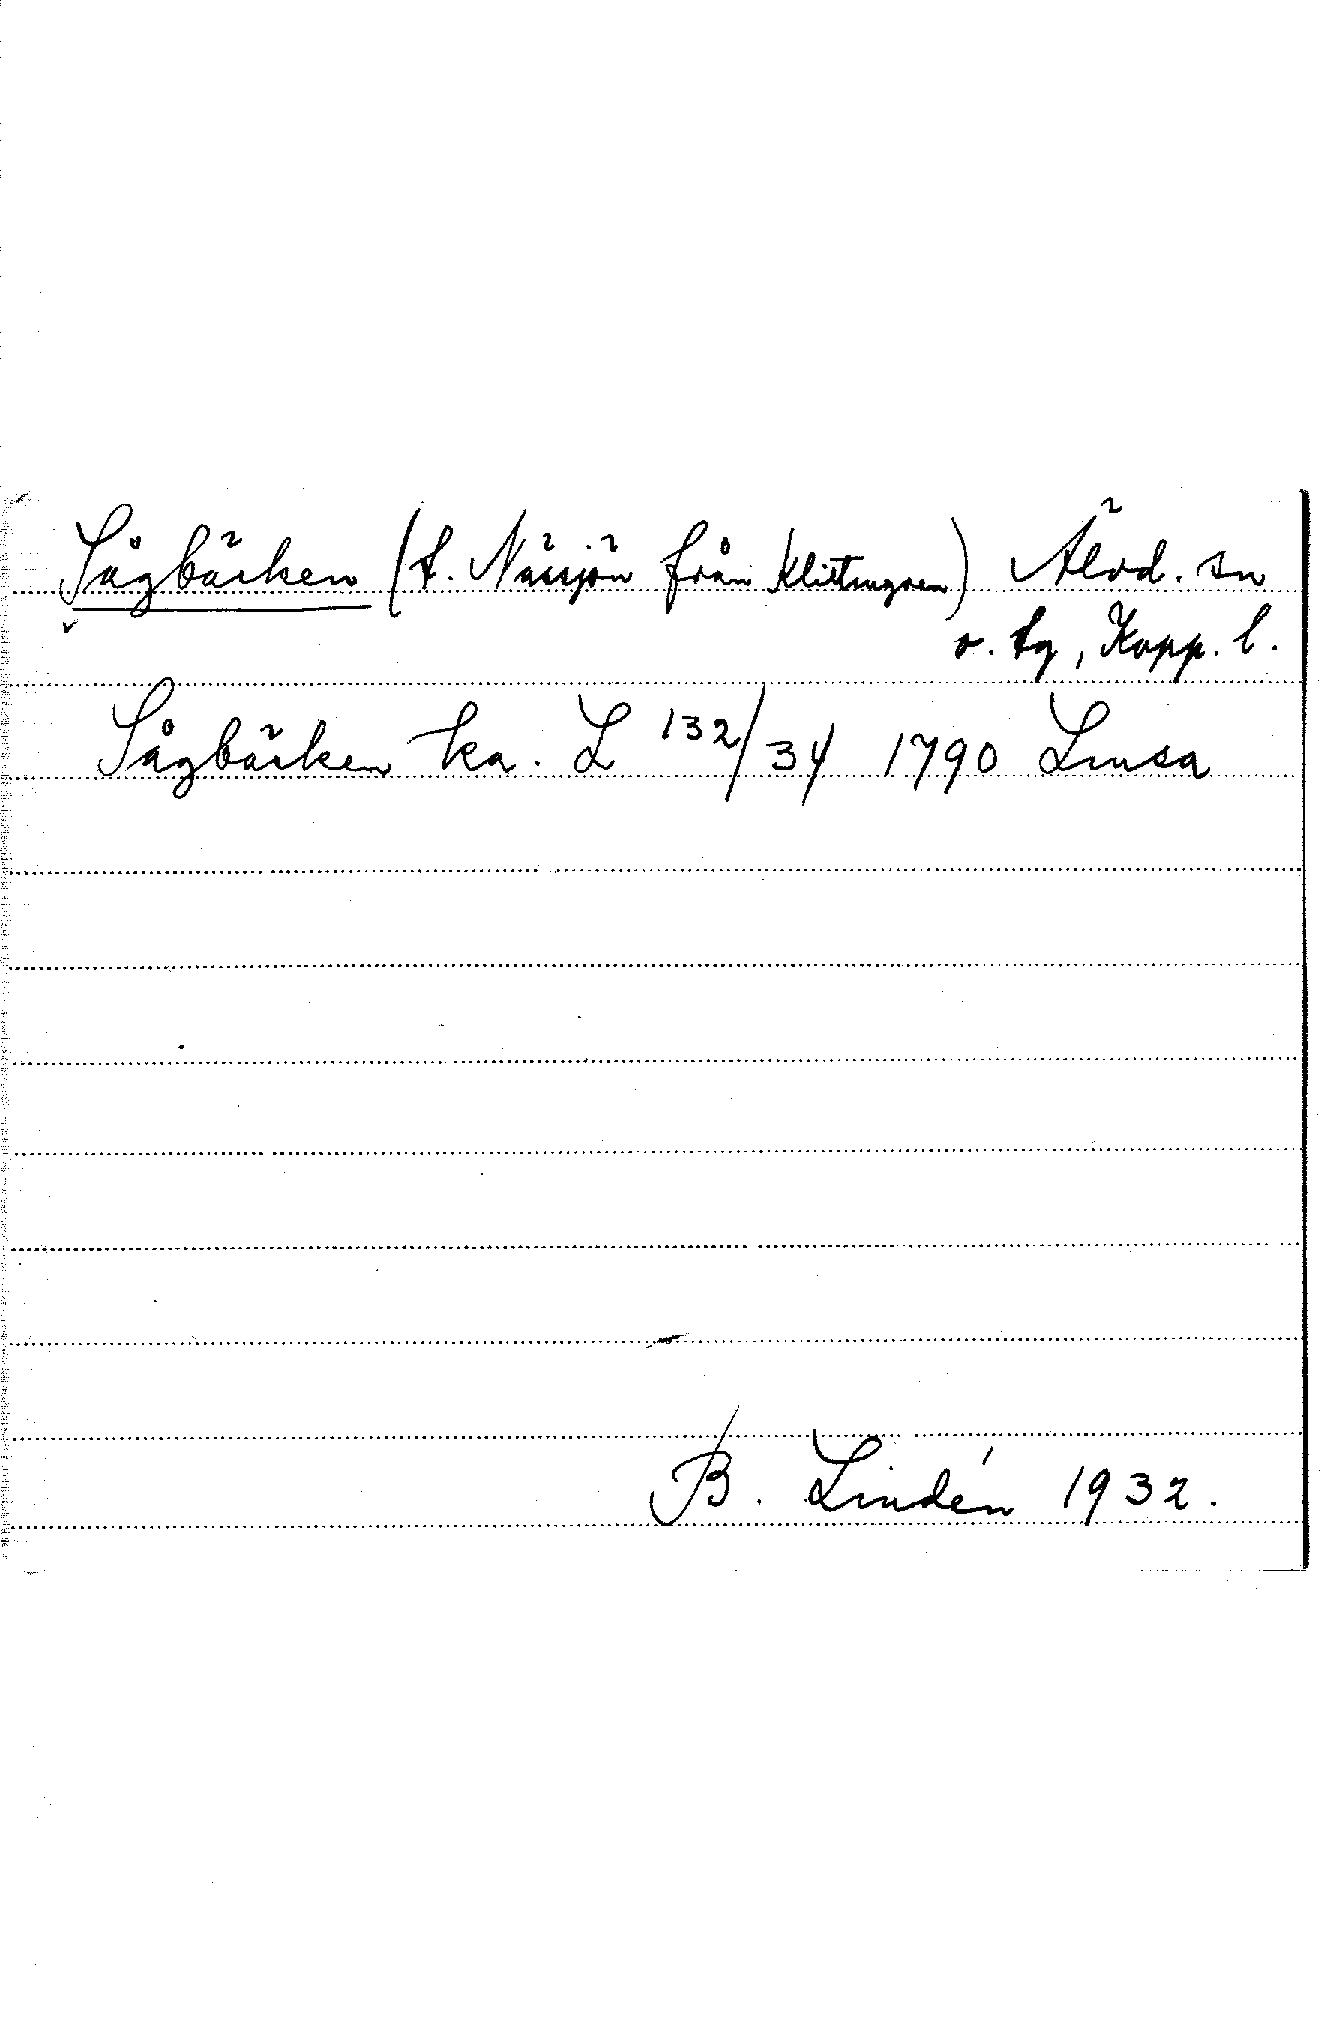 Sågbäcken (t. Nässjön från Klittingven) Älvd. sn
o. tg, Kopp. l.
Sågbäcken ka. L 132/34 1790 Lmsa
B. Lindén 1932.